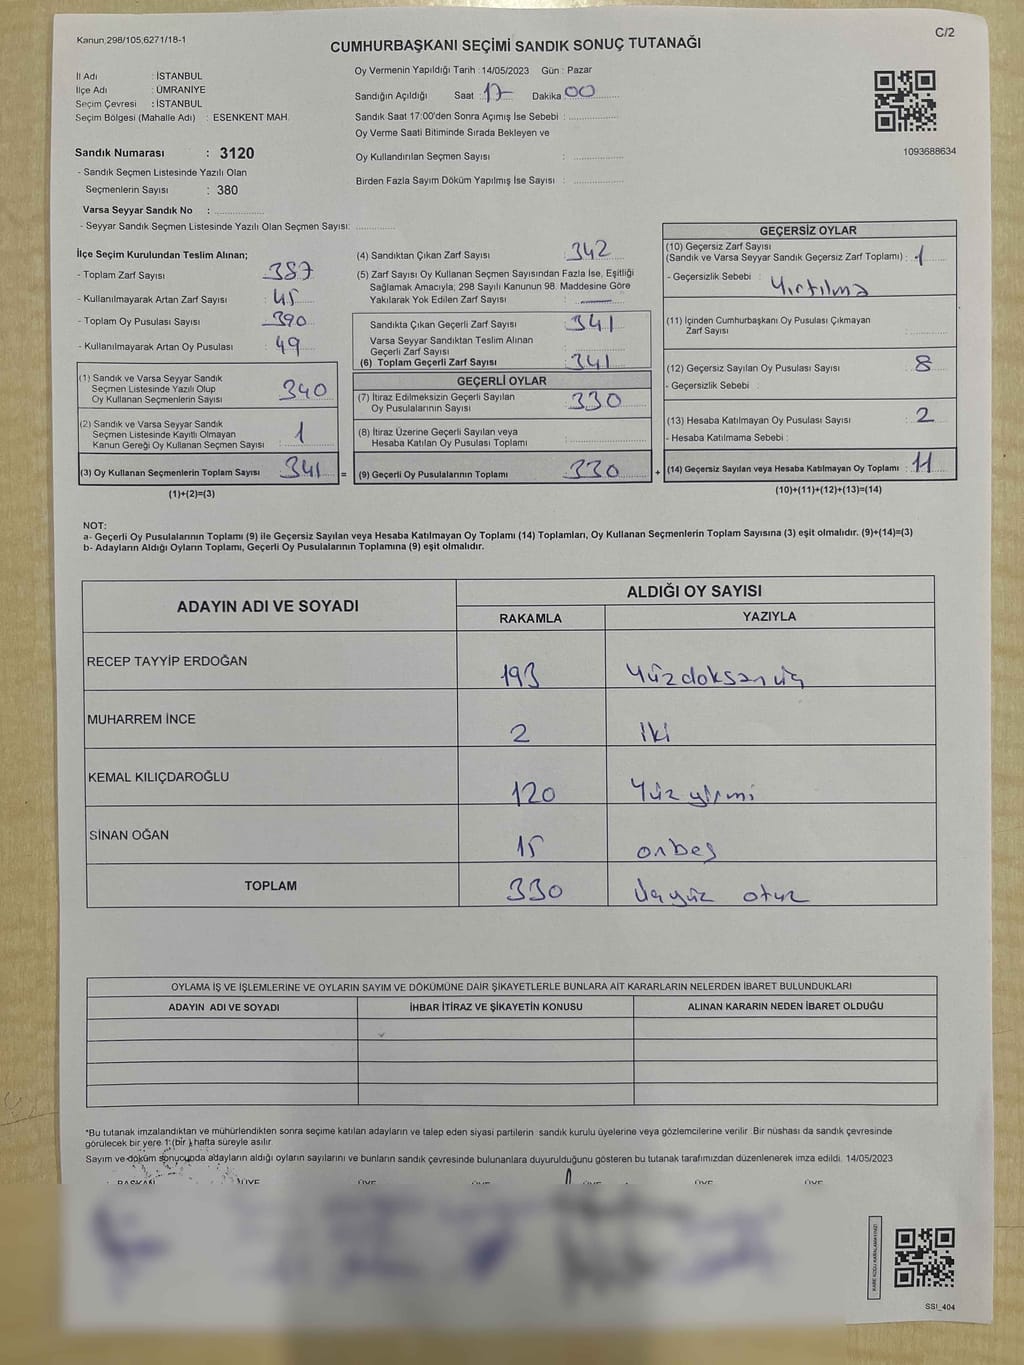 Kanun,298/105,6271/18-1
C/2
CUMHURBAŞKANI SEÇİMİ SANDIK SONUÇ TUTANAĞI
İl Adı : İSTANBUL
İlçe Adı : ÜMRANİYE
Seçim Çevresi : İSTANBUL
Seçim Bölgesi (Mahalle Adı) : ESENKENT MAH.
Sandık Numarası : 3120
- Sandık Seçmen Listesinde Yazılı Olan
Seçmenlerin Sayısı : 380
Varsa Seyyar Sandık No :
- Seyyar Sandık Seçmen Listesinde Yazılı Olan Seçmen Sayısı:
Oy Vermenin Yapıldığı Tarih :14/05/2023 Gün : Pazar
Sandığın Açıldığı Saat : 17 Dakika : 00
Sandık Saat 17:00'den Sonra Açımış İse Sebebi :
Oy Verme Saati Bitiminde Sırada Bekleyen ve
Oy Kullandırılan Seçmen Sayısı :
Birden Fazla Sayım Döküm Yapılmış İse Sayısı :
1093688634
İlçe Seçim Kurulundan Teslim Alınan;
- Toplam Zarf Sayısı : 387
- Kullanılmayarak Artan Zarf Sayısı : 45
- Toplam Oy Pusulası Sayısı : 390
- Kullanılmayarak Artan Oy Pusulası : 49
(1) Sandık ve Varsa Seyyar Sandık
Seçmen Listesinde Yazılı Olup
Oy Kullanan Seçmenlerin Sayısı : 340
(2) Sandık ve Varsa Seyyar Sandık
Seçmen Listesinde Kayıtlı Olmayan
Kanun Gereği Oy Kullanan Seçmen Sayısı : 1
(3) Oy Kullanan Seçmenlerin Toplam Sayısı : 341 =
(1)+(2)=(3)
(4) Sandıktan Çıkan Zarf Sayısı : 342
(5) Zarf Sayısı Oy Kullanan Seçmen Sayısından Fazla İse, Eşitliği
Sağlamak Amacıyla; 298 Sayılı Kanunun 98. Maddesine Göre
Yakılarak Yok Edilen Zarf Sayısı : —
Sandıkta Çıkan Geçerli Zarf Sayısı : 341
Varsa Seyyar Sandıktan Teslim Alınan
Geçerli Zarf Sayısı :
(6) Toplam Geçerli Zarf Sayısı : 341
GEÇERLİ OYLAR
(7) İtiraz Edilmeksizin Geçerli Sayılan
Oy Pusulalarının Sayısı : 330
(8) İtiraz Üzerine Geçerli Sayılan veya
Hesaba Katılan Oy Pusulası Toplamı :
(9) Geçerli Oy Pusulalarının Toplamı : 330 +
GEÇERSİZ OYLAR
(10) Geçersiz Zarf Sayısı
(Sandık ve Varsa Seyyar Sandık Geçersiz Zarf Toplamı) : 1
- Geçersizlik Sebebi : Yırtılma
(11) İçinden Cumhurbaşkanı Oy Pusulası Çıkmayan
Zarf Sayısı :
(12) Geçersiz Sayılan Oy Pusulası Sayısı : 8
- Geçersizlik Sebebi :
(13) Hesaba Katılmayan Oy Pusulası Sayısı : 2
- Hesaba Katılmama Sebebi :
(14) Geçersiz Sayılan veya Hesaba Katılmayan Oy Toplamı : 11
(10)+(11)+(12)+(13)=(14)
NOT:
a- Geçerli Oy Pusulalarının Toplamı (9) ile Geçersiz Sayılan veya Hesaba Katılmayan Oy Toplamı (14) Toplamları, Oy Kullanan Seçmenlerin Toplam Sayısına (3) eşit olmalıdır. (9)+(14)=(3)
b- Adayların Aldığı Oyların Toplamı, Geçerli Oy Pusulalarının Toplamına (9) eşit olmalıdır.
ADAYIN ADI VE SOYADI
ALDIĞI OY SAYISI
RAKAMLA YAZIYLA
RECEP TAYYİP ERDOĞAN 193 Yüzdoksan üç
MUHARREM İNCE 2 iki
KEMAL KILIÇDAROĞLU 120 Yüz yirmi
SİNAN OĞAN 15 onbeş
TOPLAM 330 üçyüz otuz
OYLAMA İŞ VE İŞLEMLERİNE VE OYLARIN SAYIM VE DÖKÜMÜNE DAİR ŞİKAYETLERLE BUNLARA AİT KARARLARIN NELERDEN İBARET BULUNDUKLARI
ADAYIN ADI VE SOYADI İHBAR İTİRAZ VE ŞİKAYETİN KONUSU ALINAN KARARIN NEDEN İBARET OLDUĞU
*Bu tutanak imzalandıktan ve mühürlendikten sonra seçime katılan adayların ve talep eden siyasi partilerin sandık kurulu üyelerine veya gözlemcilerine verilir. Bir nüshası da sandık çevresinde
görülecek bir yere 1 (bir) hafta süreyle asılır.
Sayım ve döküm sonucunda adayların aldığı oyların sayılarını ve bunların sandık çevresinde bulunanlara duyurulduğunu gösteren bu tutanak tarafımızdan düzenlenerek imza edildi. 14/05/2023
BAŞKAN ÜYE ÜYE ÜYE ÜYE ÜYE ÜYE
SSI_404